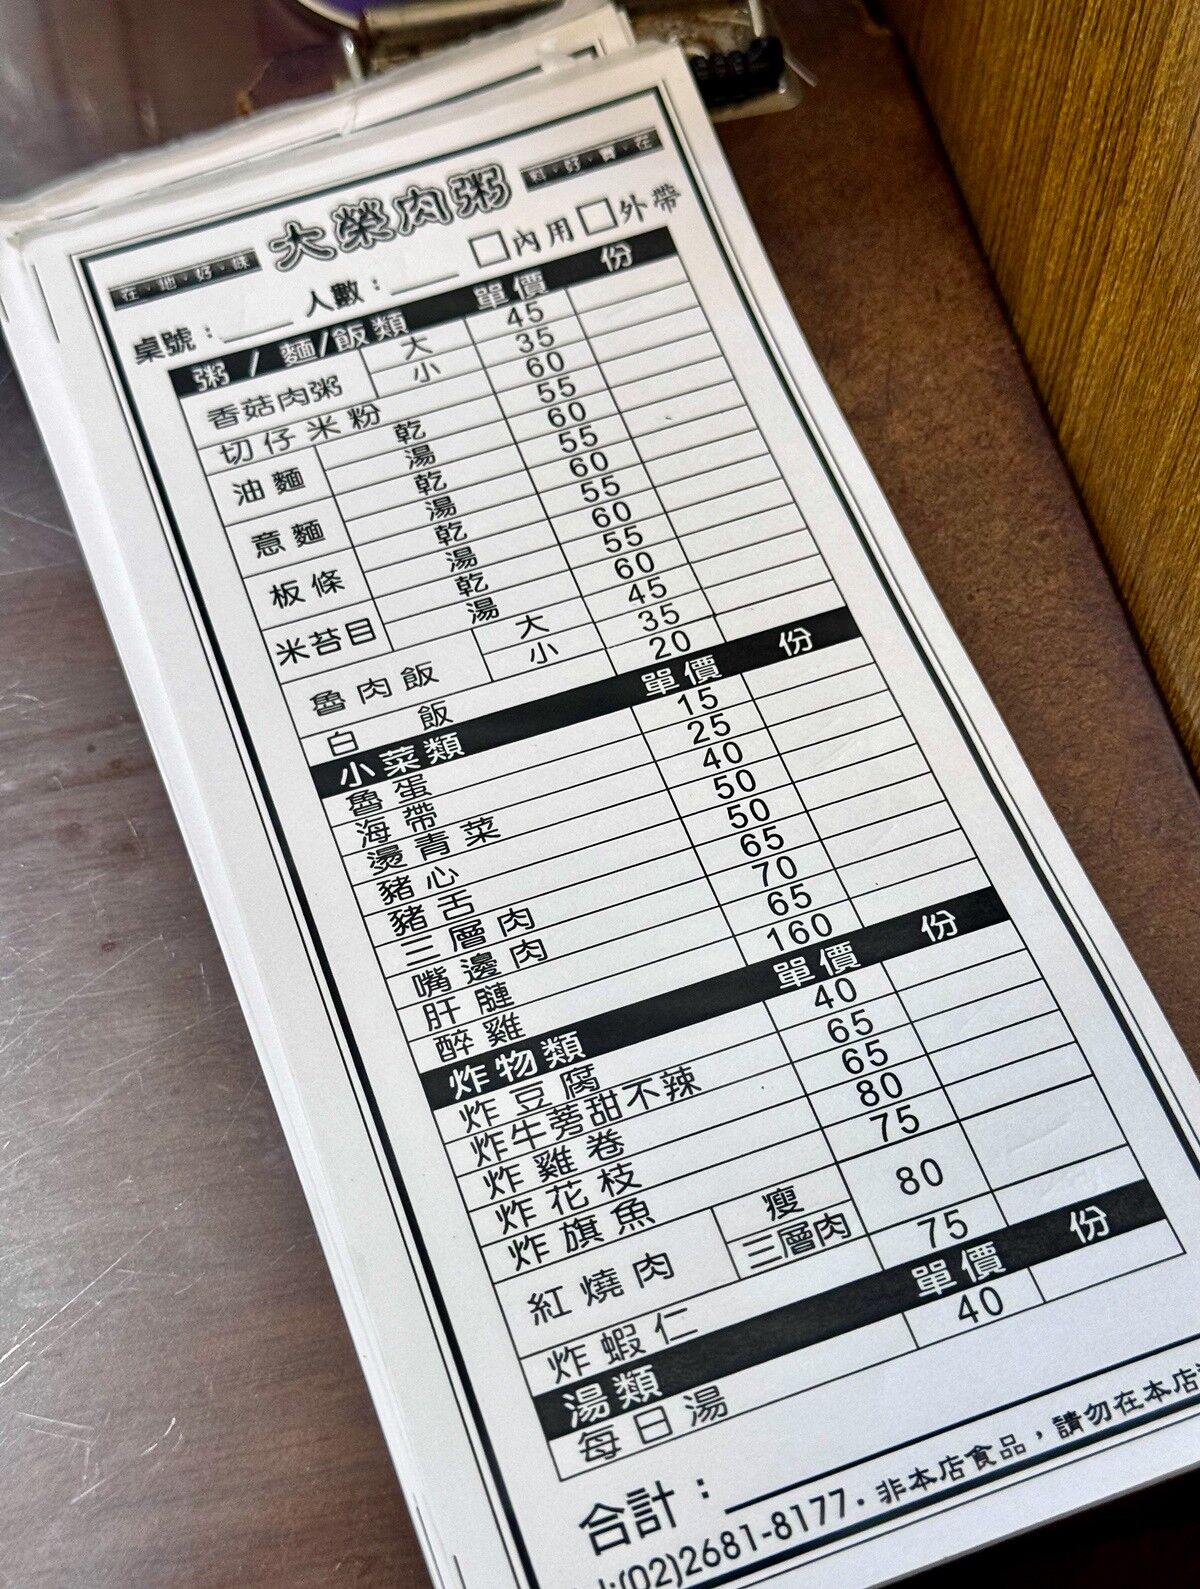 大榮肉粥
在‧地‧好‧味
桌號：____ 人數：____ □內用□外帶
粥/麵/飯類 單價 份
香菇肉粥 大 45
小 35
切仔米粉 60
油麵 乾 55
湯 60
意麵 乾 55
湯 60
板條 乾 55
湯 60
米苔目 乾 55
湯 60
魯肉飯 大 45
小 35
白飯 20
小菜類 單價 份
魯蛋 15
海帶 25
燙青菜 40
豬心 50
豬舌 50
三層肉 65
嘴邊肉 70
肝 65
醉雞 160
炸物類 單價 份
炸豆腐 40
炸牛蒡甜不辣 65
炸雞卷 65
炸花枝 80
炸旗魚 75
紅燒肉 瘦 80
三層肉
炸蝦仁 75
湯類 單價 份
每日湯 40
合計：
:(02)2681-8177‧非本店食品，請勿在本店